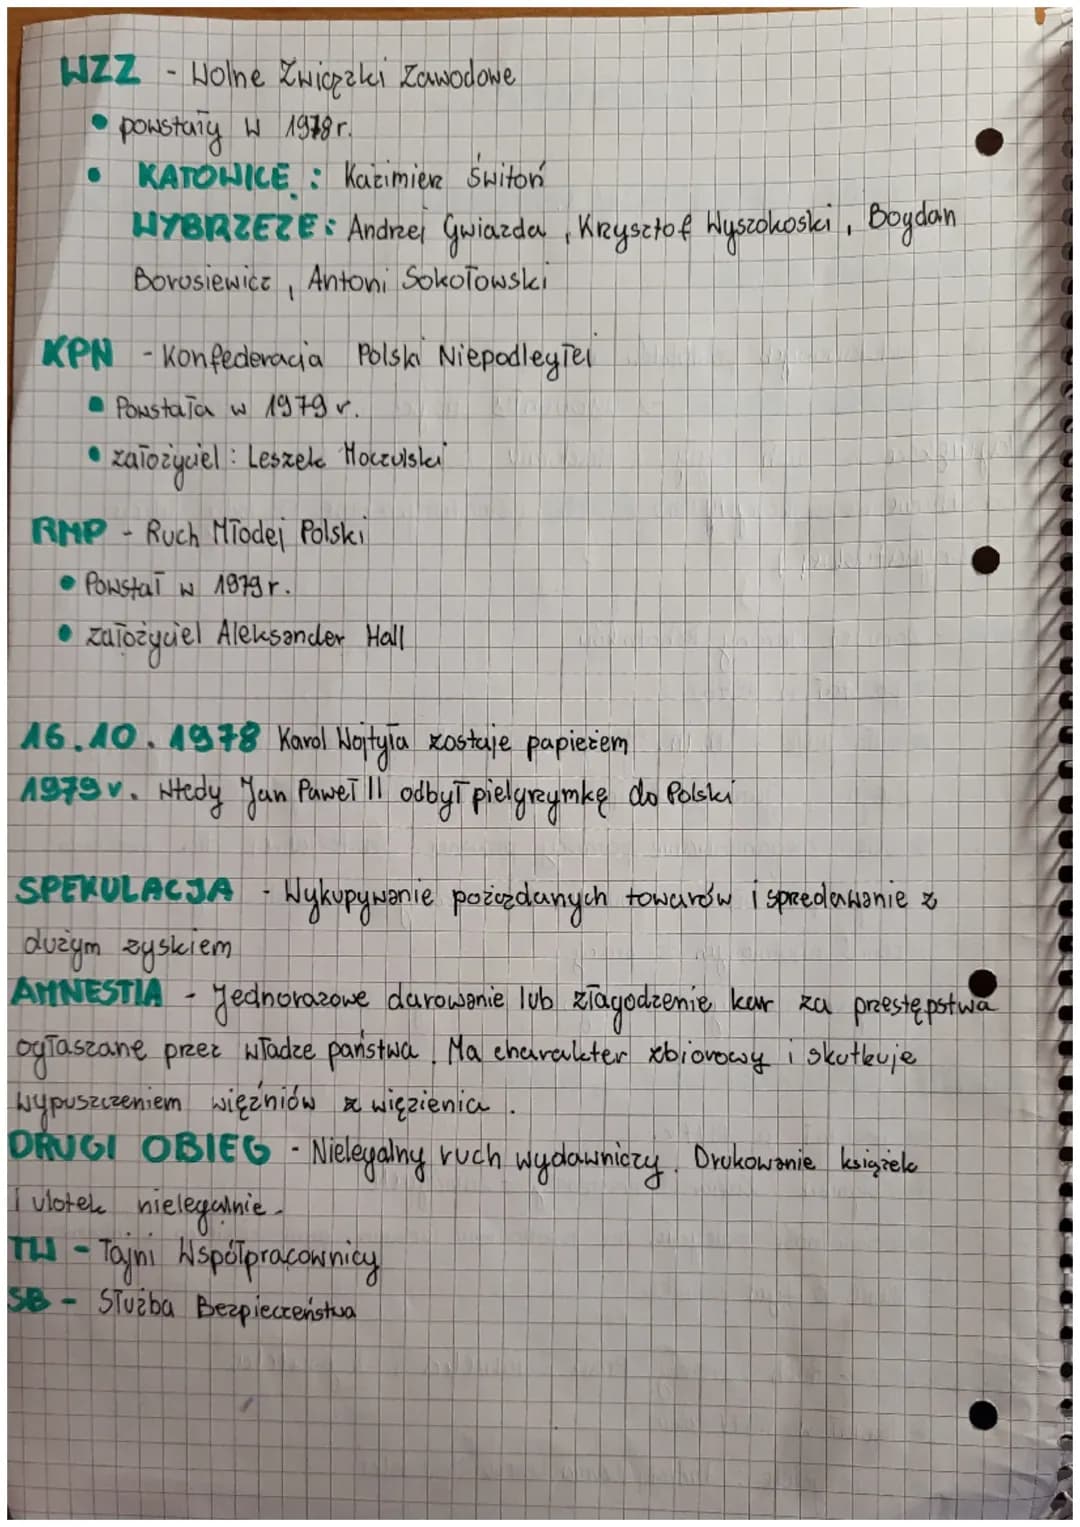 WZZ - Wolne Związki Zawodowe
• powstały w 1978r.
• KATOWICE : Kazimierz Świtoń
WYBRZEŻE : Andrzej Gwiazda , Krysztof Wyszokoski , Bogdan
Borosiewicz , Antoni Sokołowski
KPN - Konfederacja Polski Niepodległej
• Powstała w 1979 r.
• założyciel : Leszek Moczulski
RMP - Ruch Młodej Polski
• Powstał w 1979r.
• założyciel Aleksander Hall
16.10.1978 Karol Wojtyła zostaje papieżem
1979 r. Wtedy Jan Paweł II odbył pielgrzymkę do Polski
SPEKULACJA - Wykupywanie pożądanych towarów i spredawanie z
dużym zyskiem
AMNESTIA - Jednorazowe darowanie lub złagodzenie kar za przestępstwa
ogłaszane przez władze państwa . Ma charakter zbiorowy i skutkuje
wypuszczeniem więźniów z więzienia .
DRUGI OBIEG - Nielegalny ruch wydawniczy . Drukowanie książek
i ulotek nielegalnie .
TW - Tajni Współpracownicy
SB - Służba Bezpieczeństwa